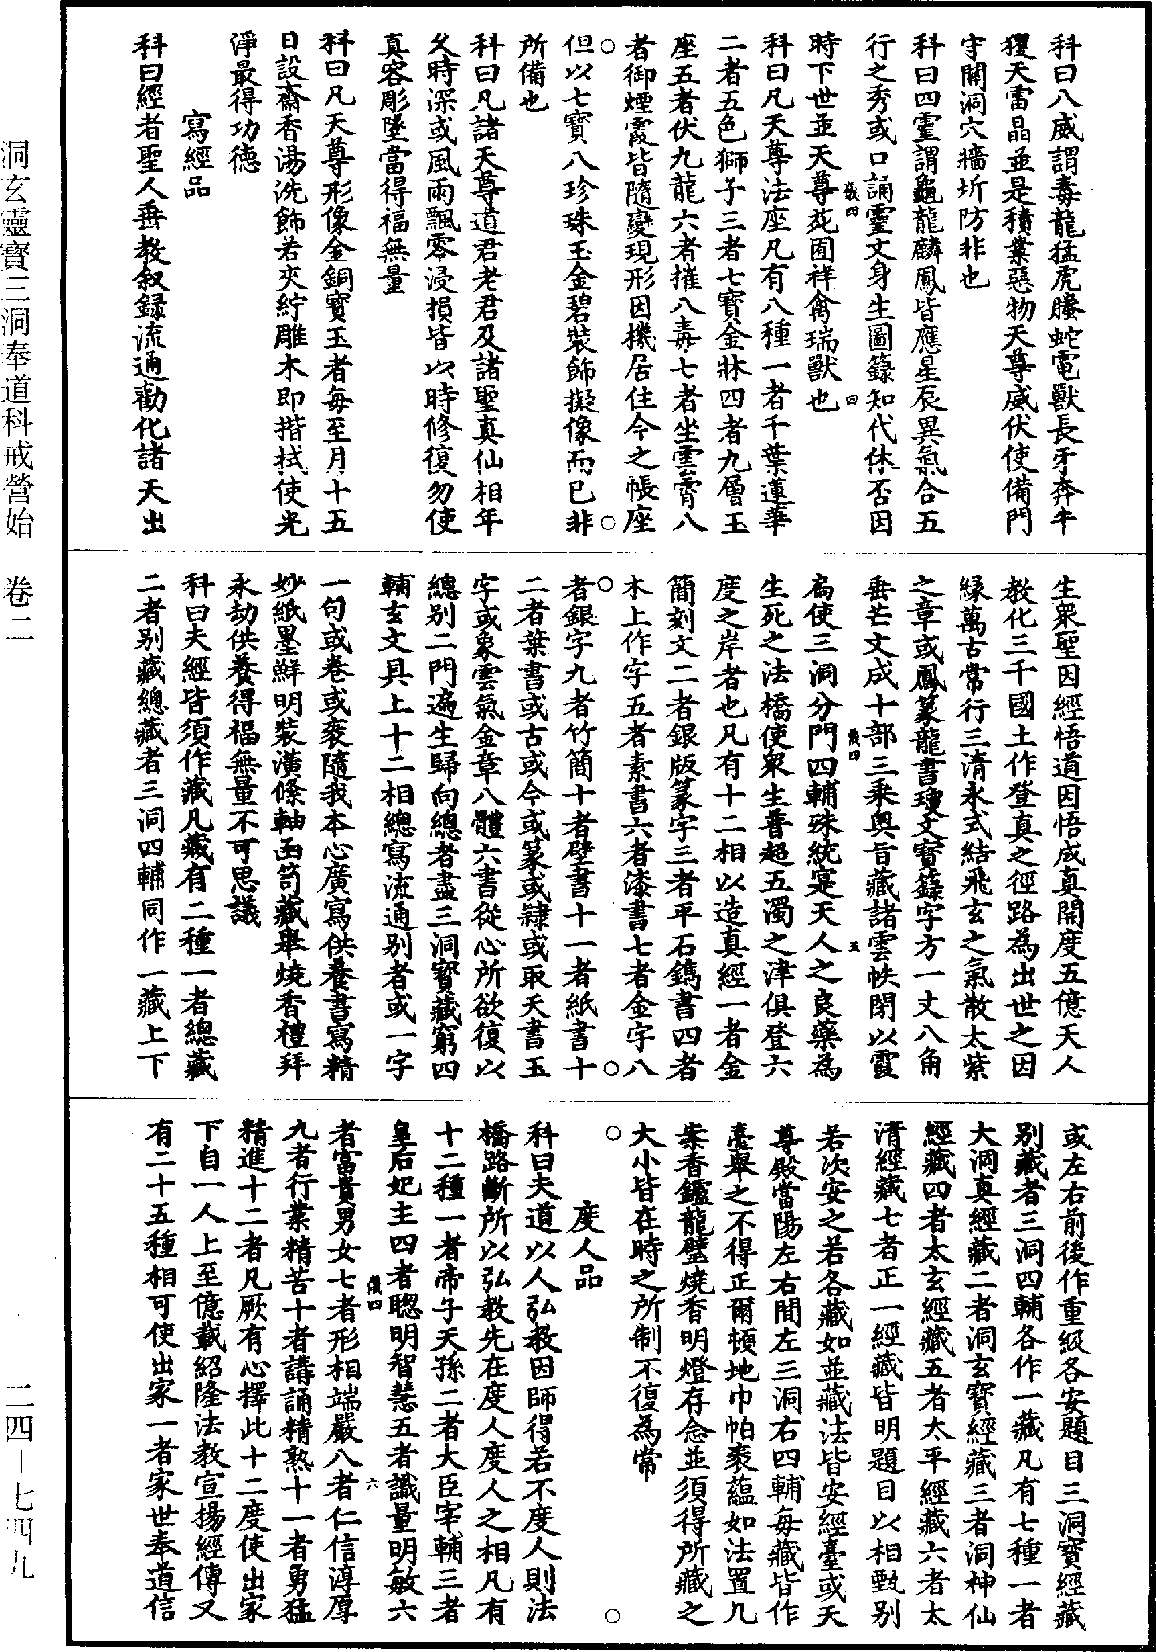 科曰八威謂毒龍猛虎螣蛇電獸長牙奔牛
玃天雷晶並是積業惡物天尊威伏使備門
守關洞穴牆圻防非也
科曰四靈謂龜龍麟鳳皆應星辰異氣合五
行之秀或口誦靈文身生圖籙知代休否因
儀四 四
時下世並天尊苑囿祥禽瑞獸也
科曰凡天尊法座凡有八種一者千葉蓮華
二者五色獅子三者七寶金牀四者九層玉
座五者伏九龍六者摧八毒七者坐雲霄八
者御煙霞皆隨變現形因機居住今之帳座
但以七寶八珍珠玉金碧裝飾擬像而已非
所備也
科曰凡諸天尊道君老君及諸聖真仙相年
久時深或風雨飄零浸損皆以時修復勿使
真容彫墜當得福無量
科曰凡天尊形像金銅寶玉者每至月十五
日設齋香湯洗飾若夾紵雕木即揩拭使光
淨最得功德
寫經品
科曰經者聖人垂教叙錄流通勸化諸天出
生衆聖因經悟道因悟成真開度五億天人
教化三千國土作登真之徑路為出世之因
緣萬古常行三清永式結飛玄之氣散太紫
之章或鳳篆龍書瓊文寶籙字方一丈八角
垂芒文成十部三乘奧旨藏諸雲帙閉以霞
儀四 五
扃使三洞分門四輔殊統寔天人之良藥為
生死之法橋使衆生普超五濁之津俱登六
度之岸者也凡有十二相以造真經一者金
簡刻文二者銀版篆字三者平石鐫書四者
木上作字五者素書六者漆書七者金字八
者銀字九者竹簡十者壁書十一者紙書十
二者葉書或古或今或篆或隸或取天書玉
字或象雲氣金章八體六書從心所欲復以
總別二門遍生歸向總者盡三洞寶藏窮四
輔玄文具上十二相總寫流通別者或一字
一句或卷或袠隨我本心廣寫供養書寫精
妙紙墨鮮明裝潢條軸函笥藏舉燒香禮拜
永劫供養得福無量不可思議
科曰夫經皆須作藏凡藏有二種一者總藏
二者別藏總藏者三洞四輔同作一藏上下
或左右前後作重級各安題目三洞寶經藏
別藏者三洞四輔各作一藏凡有七種一者
大洞真經藏二者洞玄寶經藏三者洞神仙
經藏四者太玄經藏五者太平經藏六者太
清經藏七者正一經藏皆明題目以相甄別
若次安之若各藏如並藏法皆安經臺或天
尊殿當陽左右間左三洞右四輔每藏皆作
臺舉之不得正爾頓地巾帕袠蘊如法置几
案香鑪龍璧燒香明燈存念並須得所藏之
大小皆在時之所制不復為常
度人品
科曰夫道以人弘教因師得若不度人則法
橋路斷所以弘教先在度人度人之相凡有
十二種一者帝子天孫二者大臣宰輔三者
皇后妃主四者聰明智慧五者識量明敏六
儀四 六
者富貴男女七者形相端嚴八者仁信淳厚
九者行業精苦十者講誦精熟十一者勇猛
精進十二者凡厥有心擇此十二度使出家
下自一人上至億載紹隆法教宣揚經傳又
有二十五種相可使出家一者家世奉道信
洞玄靈寶三洞奉道科戒營始 卷二
二四－七四九